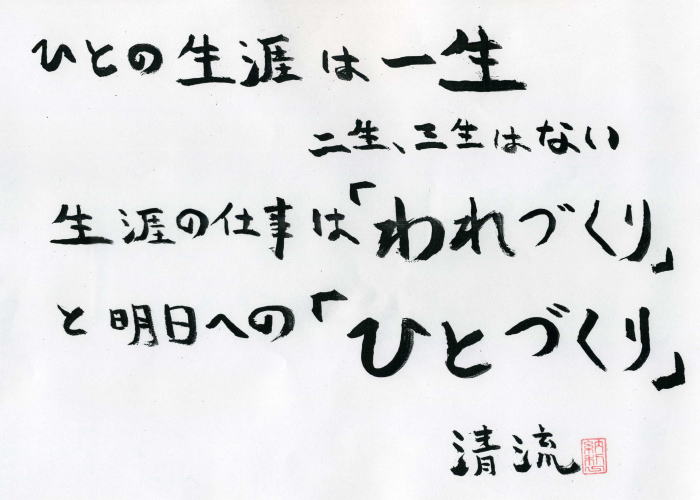 ひとの生涯は一生
二生、三生はない
生涯の仕事は「われづくり」
と明日への「ひとづくり」
清流